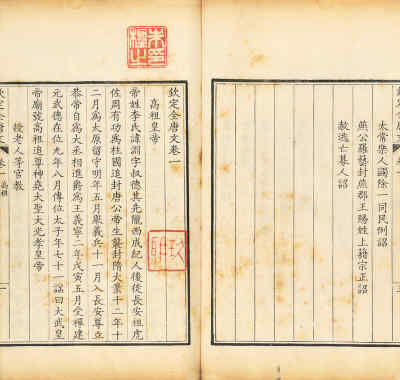 太常樂人蠲除一同民例詔
燕公羅藝封燕郡王賜姓上籍宗正詔
赦逃亡募人詔
欽定全唐文卷一
高祖皇帝
帝姓李氏諱淵字叔德其先隴西成紀人後徙長安祖虎
佐周有功為柱國追封唐公帝生襲封隋大業十二年十
二月為太原留守明年五月舉義兵十一月入長安尊立
恭帝自為大丞相進爵為王義寧二年戊寅五月受禪建
元武德在位九年八月傳位太子年七十一諡曰大武皇
帝廟號高祖追尊神堯大聖大光孝皇帝
授老人等官教
欽定全唐文 卷一 高祖 一